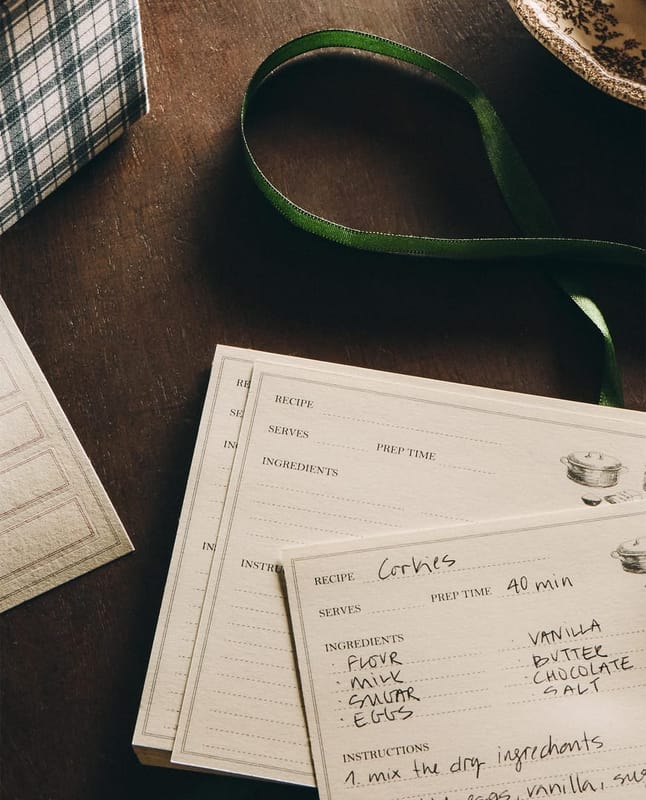 RE
SE
IN
IN
RECIPE
SERVES PREP TIME
INGREDIENTS
INSTRU
RECIPE Cookies
SERVES PREP TIME 40 min
INGREDIENTS
· FLOUR · VANILLA
· MILK · BUTTER
· SUGAR · CHOCOLATE
· EGGS · SALT
INSTRUCTIONS
1. mix the dry ingredients
eggs, vanilla,